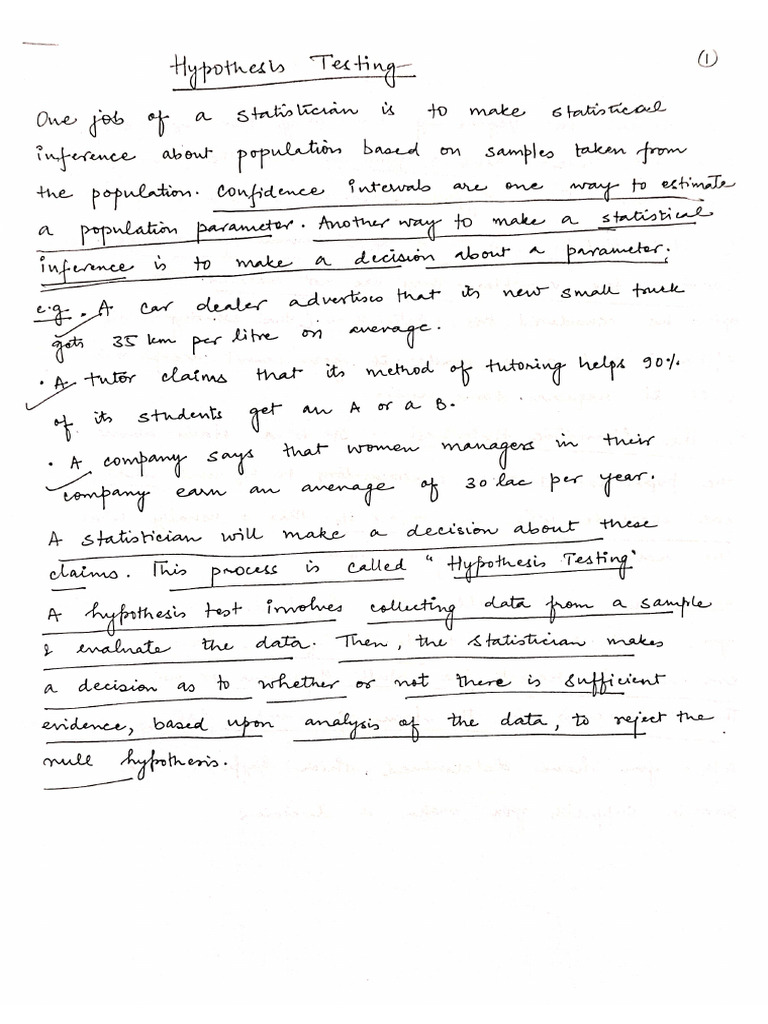 Hypothesis Testing
1
One job of a statistician is to make statistical
inference about population based on samples taken from
the population. Confidence intervals are one way to estimate
a population parameter. Another way to make a statistical
inference is to make a decision about a parameter.
e.g. • A car dealer advertises that its new small truck
gets 35 km per litre on average.
• A tutor claims that its method of tutoring helps 90%
of its students get an A or a B.
• A company says that women managers in their
company earn an average of 30 lac per year.
A statistician will make a decision about these
claims. This process is called "Hypothesis Testing"
A hypothesis test involves collecting data from a sample
& evaluate the data. Then, the statistician makes
a decision as to whether or not there is sufficient
evidence, based upon analysis of the data, to reject the
null hypothesis.